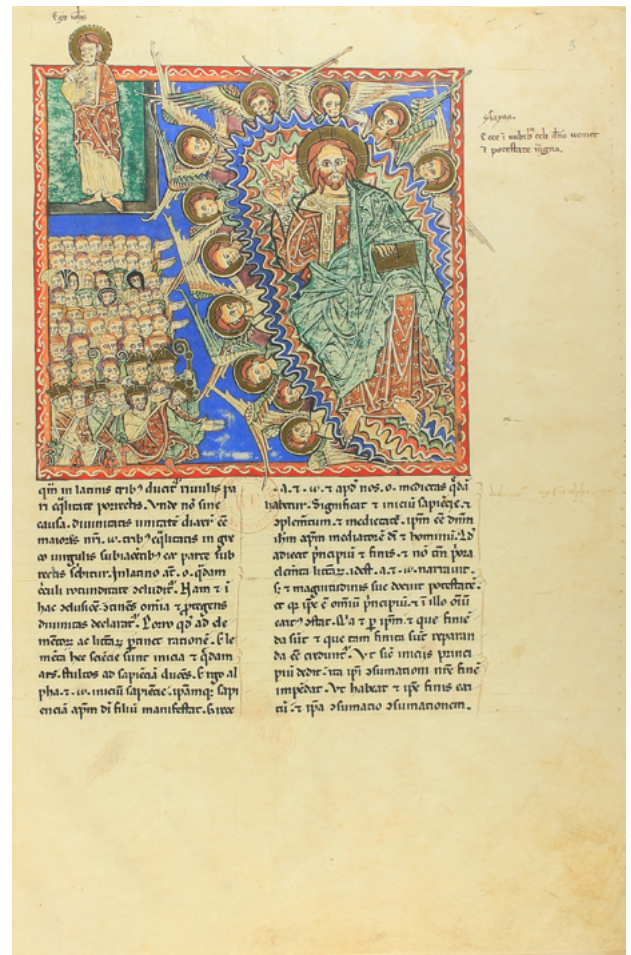 Ego ioh̄s
3
ysayas.
Ecce ī nubibꝰ celi dn̄s ueniet
⁊ potestate magna.
qm̄ in latinis tribꝰ ducitᷣ riuulis pa
ri eq̄litate porrectis. Vnde nō sine
causa. diuinitatis unitatē diaxīt eē
maiores nr̄i. w. tribꝰ eq̄litatis in gre
co uirgulis subiacētibꝰ ex parte sub
rectis sc̄bitur. In latino aūt. o. q̄dam
c̄culi rotunditate ɔcluditᷣ. Nam ⁊ ī
hac ɔclusiōe ɔtinēs om̄ia ⁊ ꝓtegens
diuinitas declaratᷣ. Porro qd̄ ad ele
mētoꝝ ac litt̄aꝝ ꝑtinet rationē. Ele
mēta hec sciēcie sunt inicia ⁊ q̄dam
ars. stultos ad sapiēciā ducēs. Ergo al
pha. ⁊. w. iniciū sapiēcie. ipāmqꝫ sapi
enciā apm̄ dī filiū manifestat. Grece
. a. ⁊. w. ⁊ apd̄ nos. o. medietas q̄dā
habetur. Significat ⁊ iniciū sapiēcie. ⁊
ɔplemētum. ⁊ medietatē. ipm̄ eē dn̄m
ih̄m xp̄m mediatorē dī ⁊ hominū.
adiceat p̄ncipiū ⁊ finis. ⁊ nō tm̄
elemēta litt̄aꝝ. idest. a. ⁊. w. narrauit.
sꝫ ⁊ magnitudinis sue docuit potestatē.
et qꝛ ip̄e ē om̄iū p̄ncipiū. ⁊ ī illo om̄iū
ɔstat. Q̄a ⁊ ꝑ ip̄m. ⁊ que finiē
da sūt ⁊ que tam finita sūt reparan
da eē credunt'. Vt sic̄ iniciis princi
piū dedit. ita ip̄i ɔsumationi
impēdat. Vt habeat ⁊ ip̄e finis
⁊ ip̄a ɔsumatio ɔsumationem.